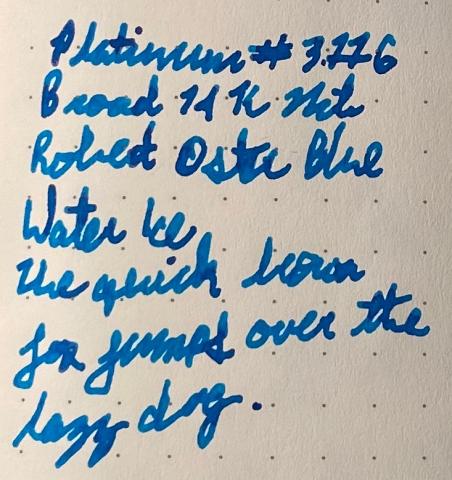 Platinum # 3776
Broad 14 K Nib
Robert Oster Blue
Water Ice
The quick brown
fox jumps over the
lazy dog.